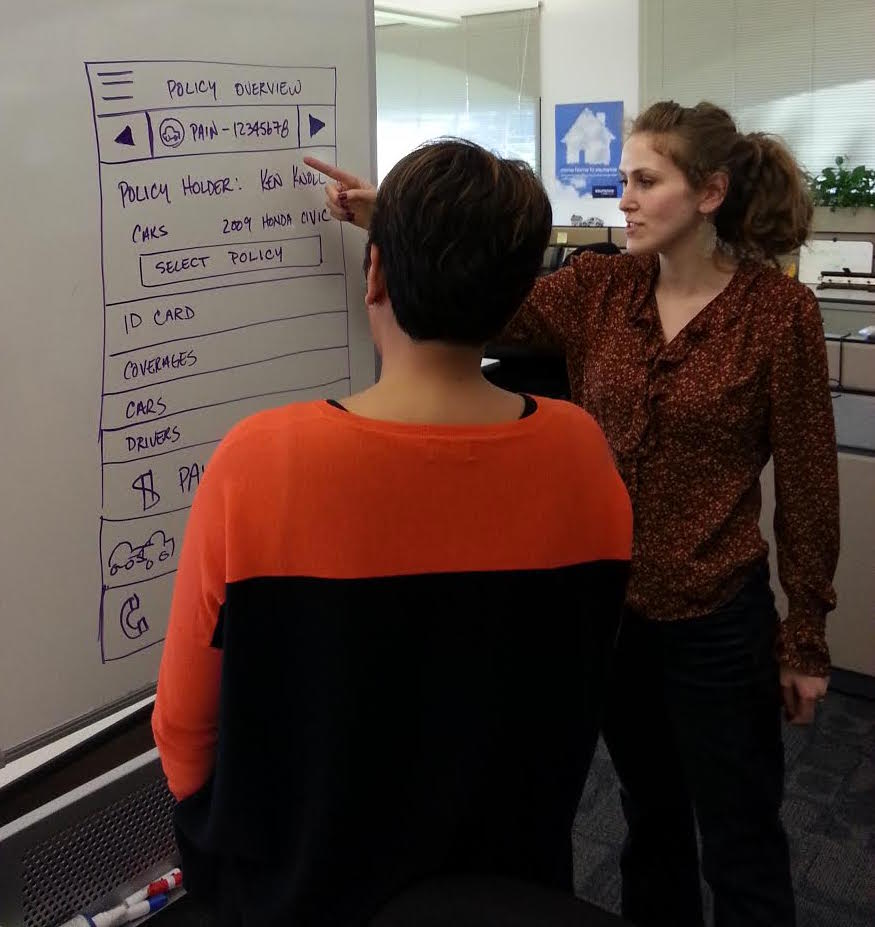 POLICY OVERVIEW
PAIN-12345678
POLICY HOLDER: KEN KNOLL
CARS 2009 HONDA CIVIC
SELECT POLICY
ID CARD
COVERAGES
CARS
DRIVERS
$ PA